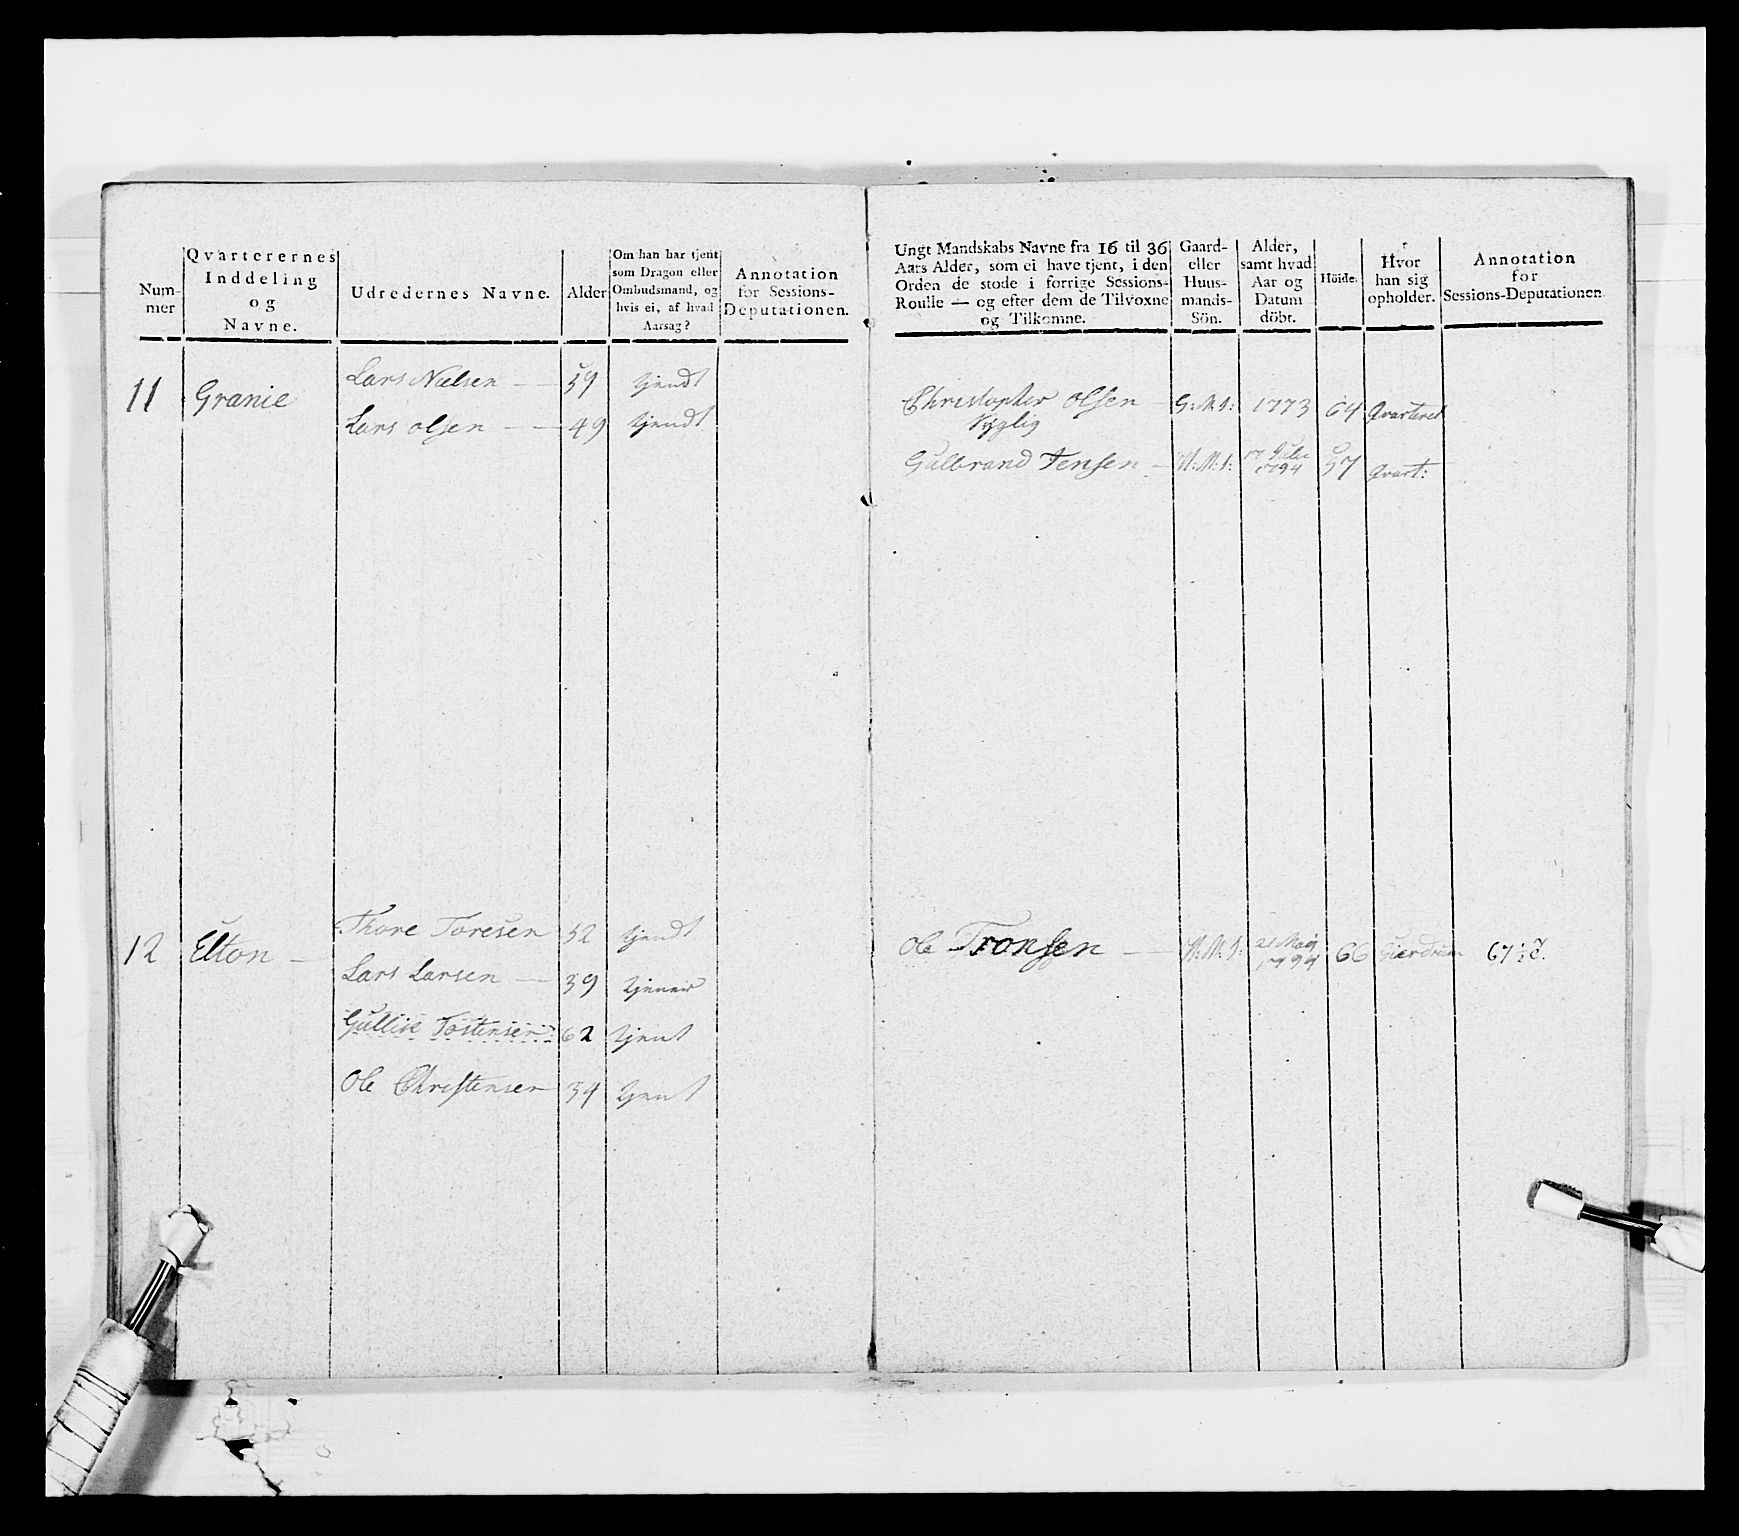 Num-
mer
Qvarterernes
Inddeling
og
Navne.
Udredernes Navne.
Alder
Om han har tjent
som Dragon eller
Ombudsmand, og
hvis ei, af hvad
Aarsag?
Annotation
for Sessions-
Deputationen.
11 Granie Lars Nielsen 59 tjendt
Lars Olsen 49 tjendt
12 Elton Thore Toresen 52 tjendt
Lars Larsen 39 tjener
Gullik Tostensen 62 tjent
Ole Christensen 34 tjent
Ungt Mandskabs Navne fra 16 til 36
Aars Alder, som ei have tjent, i den
Orden de stode i forrige Sessions-
Roulle — og efter dem de Tilvoxne
og Tilkomne.
Gaard-
eller
Huus-
mands-
Sön.
Alder,
samt hvad
Aar og
Datum
döbt.
Höide.
Hvor
han sig
opholder.
Annotation
for
Sessions-Deputationen.
Christopher Olsen G:M:S: 1773 64 Qvarteret
Gulbrand Jensen H:M:S: 17 1794 57 Qvart:
Ole Tronsen H:M:S: 21 Maij 1794 66 Gierdrum 67 ½ T.